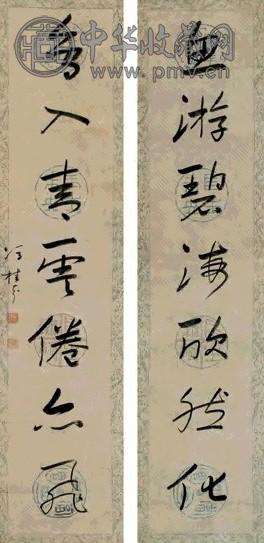 中华收藏网
www.pmv.cn
魚游碧海欣然化
鳥入青雲倦亦飛
馮桂芬